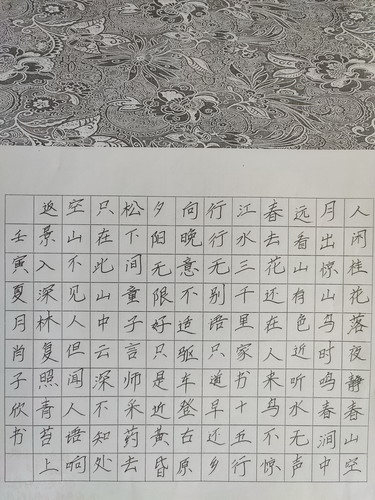 人闲桂花落夜静春山空
月出惊山鸟时鸣春涧中
远看山有色近听水无声
春去花还在人来鸟不惊
江水三千里家书十五行
行行无别语只道早还乡
向晚意不适驱车登古原
夕阳无限好只是近黄昏
松下问童子言师采药去
只在此山中云深不知处
空山不见人但闻人语响
返景入深林复照青苔上
壬寅夏月肖子欣书